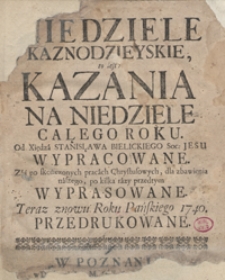 NIEDZIELE
KAZNODZIEYSKIE,
to iest
KAZANIA
NA NIEDZIELE
CAŁEGO ROKU.
Od Xiędza STANISŁAWA BIELICKIEGO Soc: JESU
WYPRACOWANE.
Zaś po skończonych pracach Chrystusowych, dla zbawienia
naszego, po kilka razy przedtym
WYPRASOWANE.
Teraz znowu Roku Pańskiego 1740.
PRZEDRUKOWANE.
W POZNANI